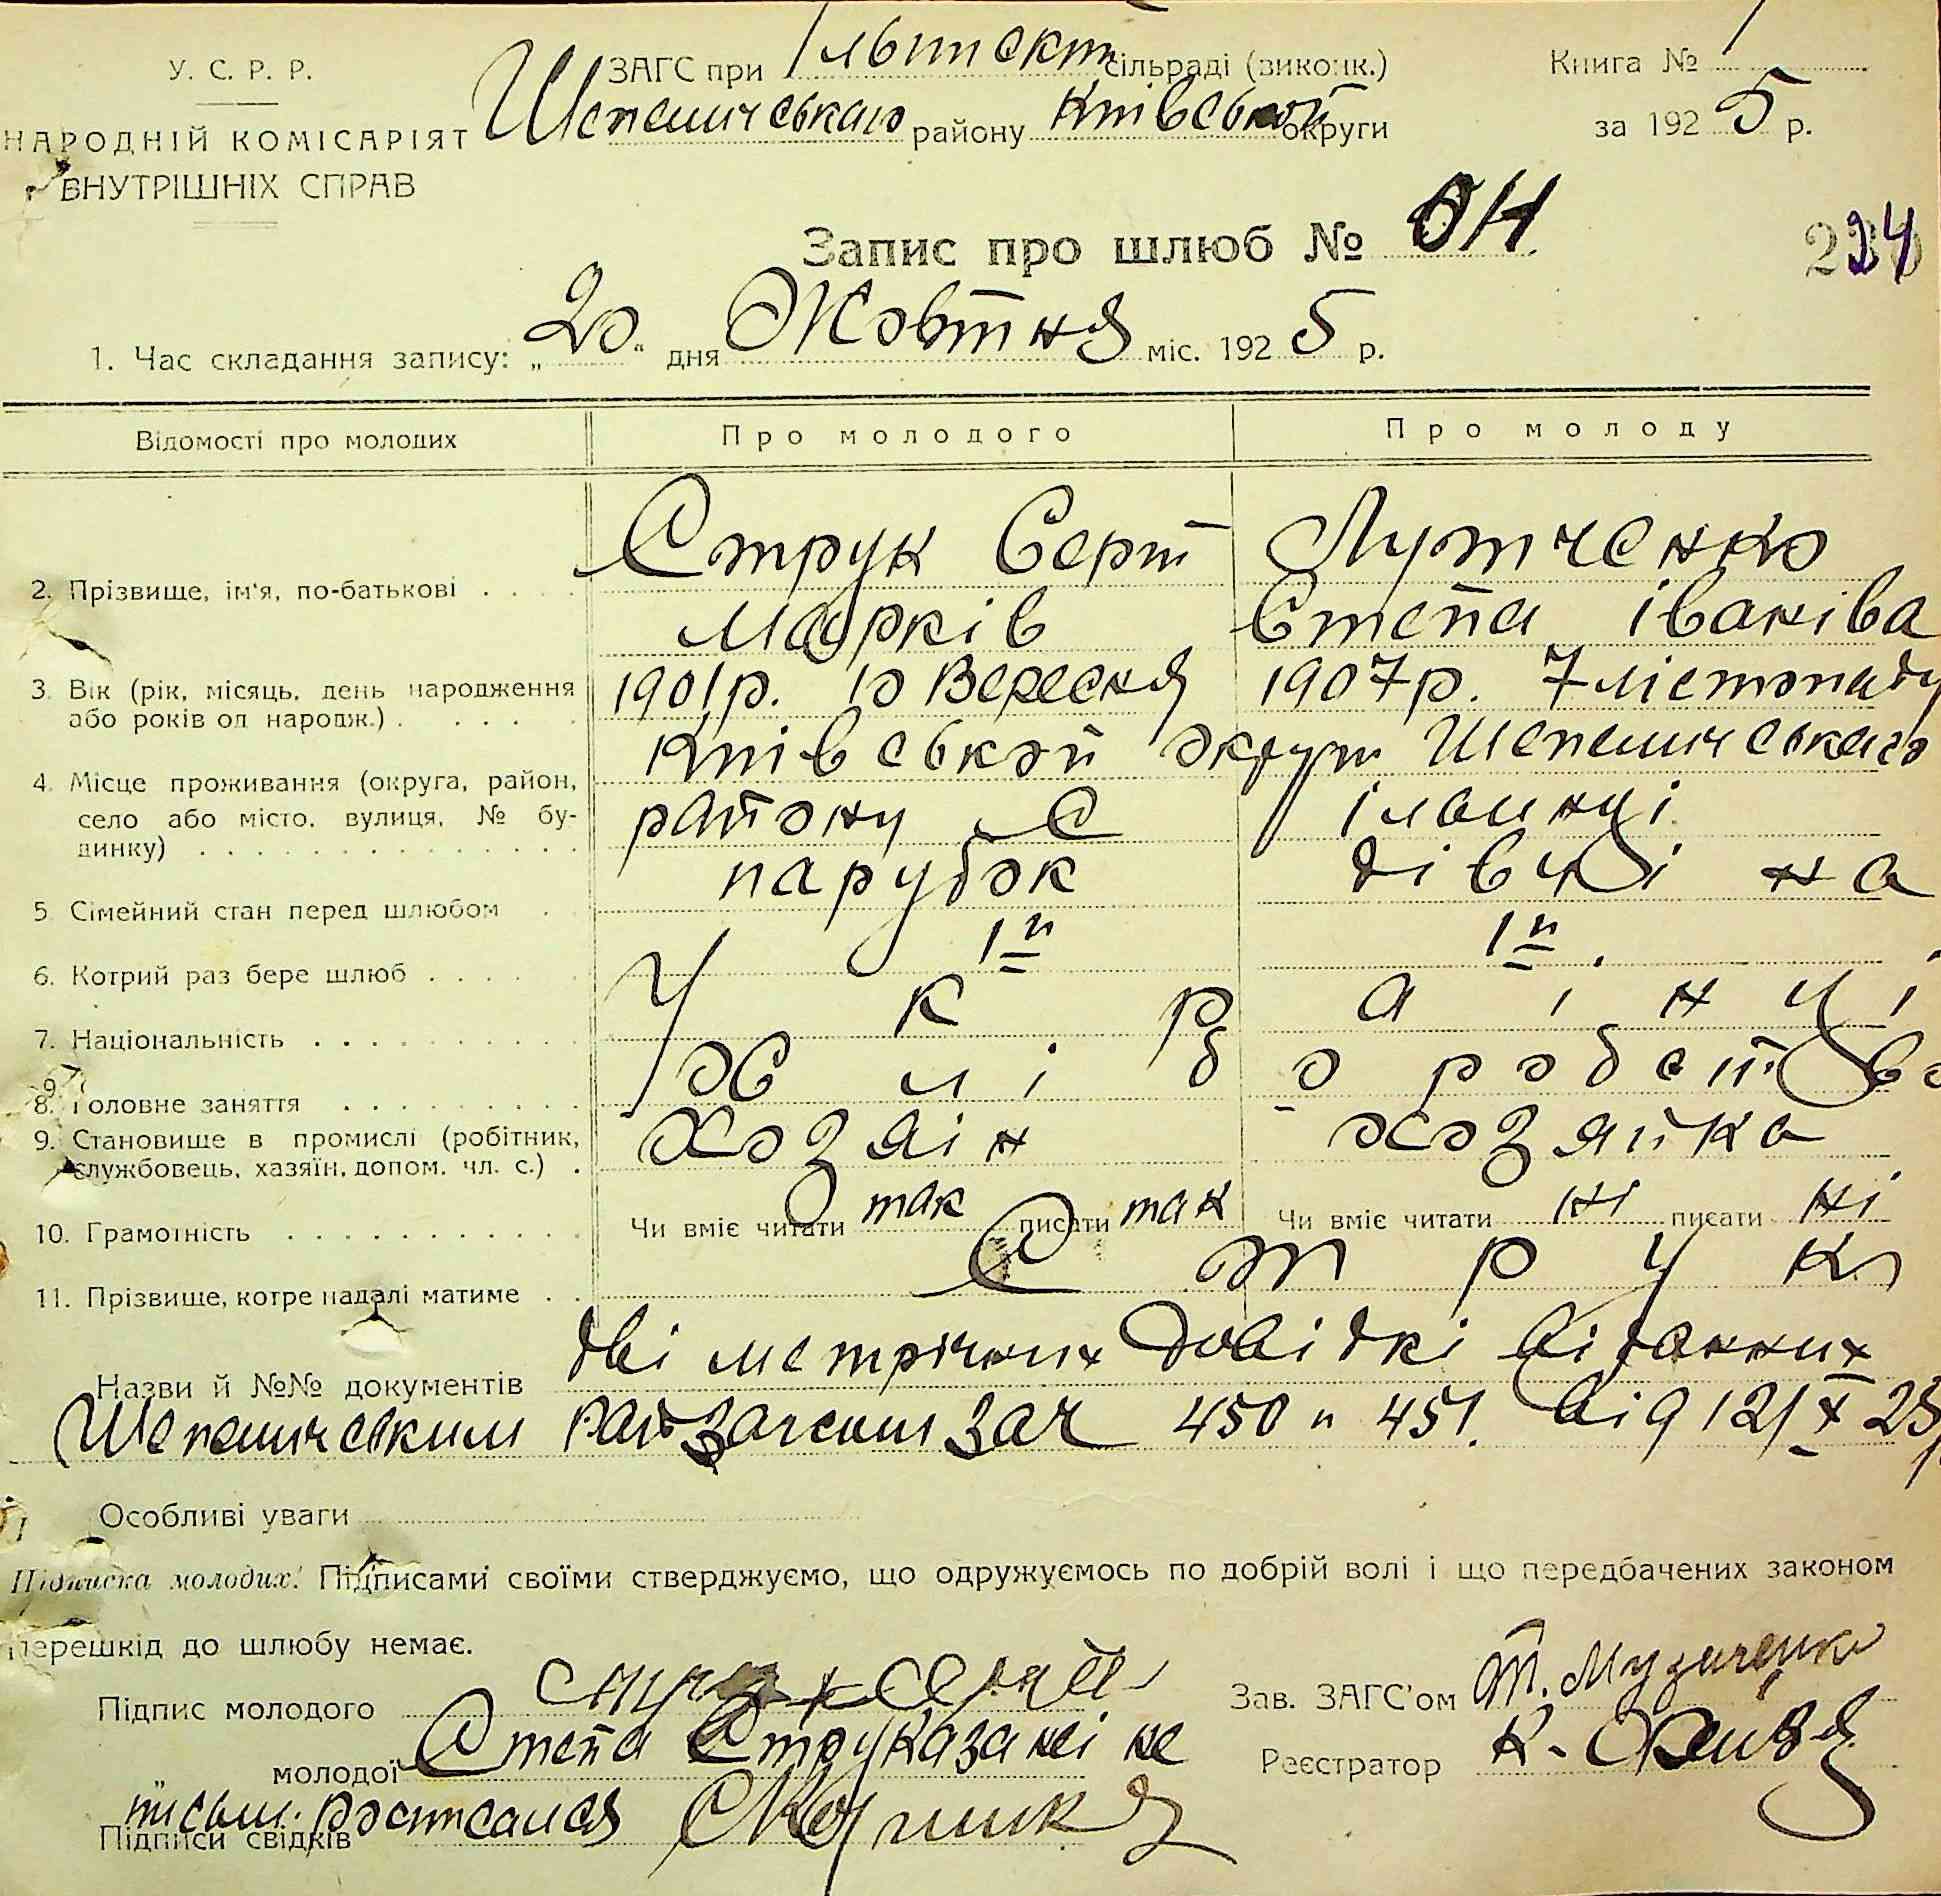 У. С. Р. Р.
НАРОДНІЙ КОМІСАРІЯТ
ВНУТРІШНІХ СПРАВ
ЗАГС при Ільинскій сільраді (виконк.)
Шепелическаго району Київської округи
Книга № 1
за 1925 р.
Запис про шлюб №
234
1. Час складання запису: „20" дня Жовтня міс. 1925 р.
Відомості про молодих Про молодого Про молоду
2. Прізвище, ім'я, по-батькові . . . . Струк Сергій Лутченко
Марків Степа іваніва
3. Вік (рік, місяць, день народження або років од народж.) . . . . . 1901р. 10 Вересня 1907р. 7 лістопаду
4. Місце проживання (округа, район, село або місто, вулиця, № будинку) . . . . Київської округи Шепелическаго
району С ільинці
5. Сімейний стан перед шлюбом . парубок дівчіна
6. Котрий раз бере шлюб . . . . 1й 1й.
7. Національність . . . . . . . . . . Українці
8. Головне заняття . . . . . . . . . хліборобство
9. Становище в промислі (робітник, службовець, хазяїн, допом. чл. с.) . хозяін хозяйка
10. Грамотність . . . . . . . . . . Чи вміє читати так писати так Чи вміє читати ні писати ні
11. Прізвище, котре надалі матиме . . Струк
Назви й №№ документів дві метричних довідкі віданних
Шепеличським райзагсом зач 450 и 451. від 12/X 25р
Особливі уваги
Підписка молодих: Підписами своїми стверджуємо, що одружуємось по добрій волі і що передбачених законом
перешкід до шлюбу немає.
Підпис молодого Струк Сергій
Зав. ЗАГС'ом Т. Музиченко
„ молодої Степа Струк за неі не
Реєстратор К.
письм. ростисался
Підписи свідків